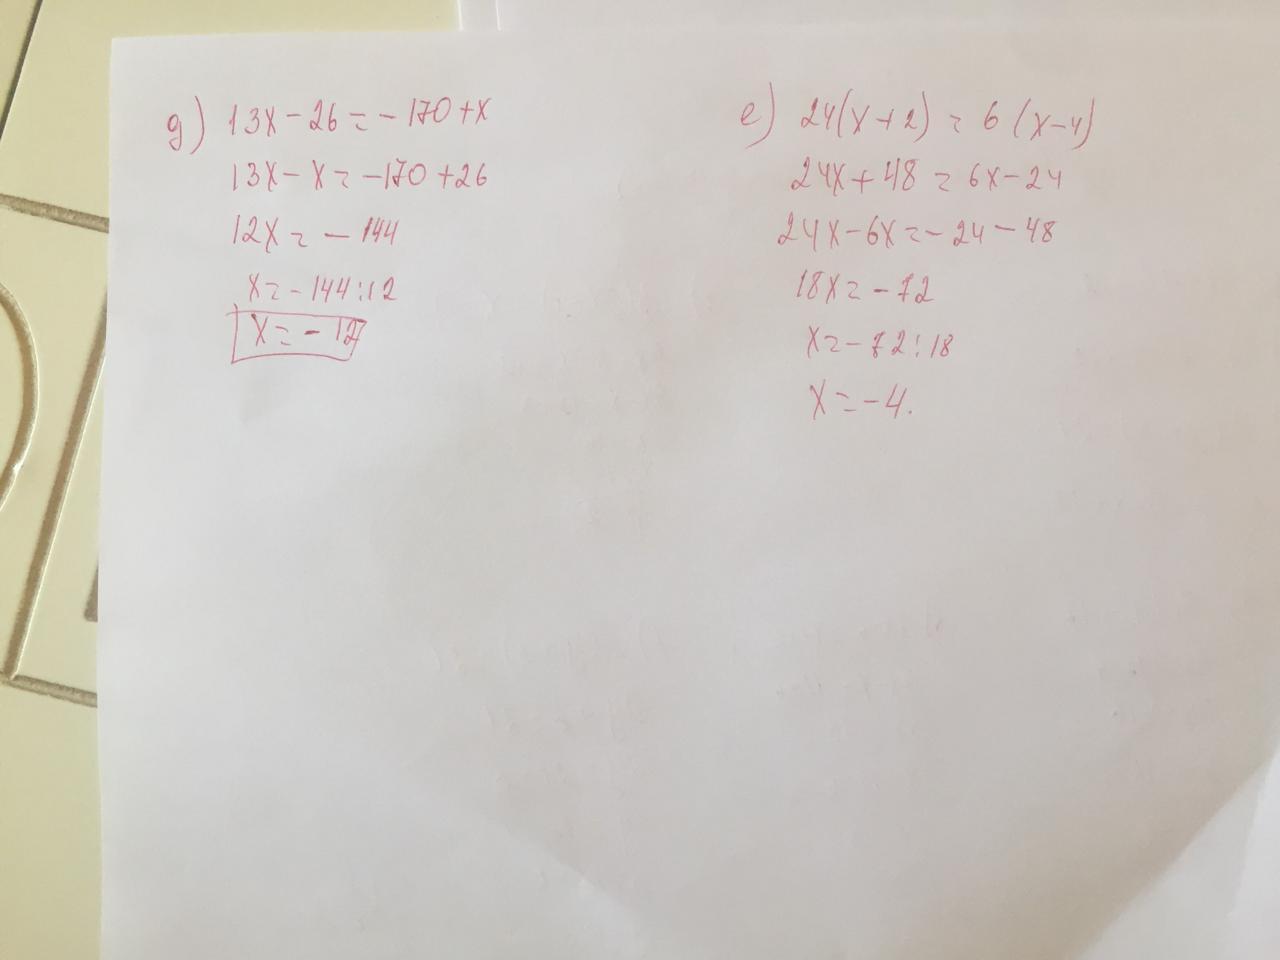 д) 13x-26=-170+x
13x-x=-170+26
12x=-144
x=-144:12
x=-12
e) 24(x+2)=6(x-4)
24x+48=6x-24
24x-6x=-24-48
18x=-72
x=-72:18
x=-4.